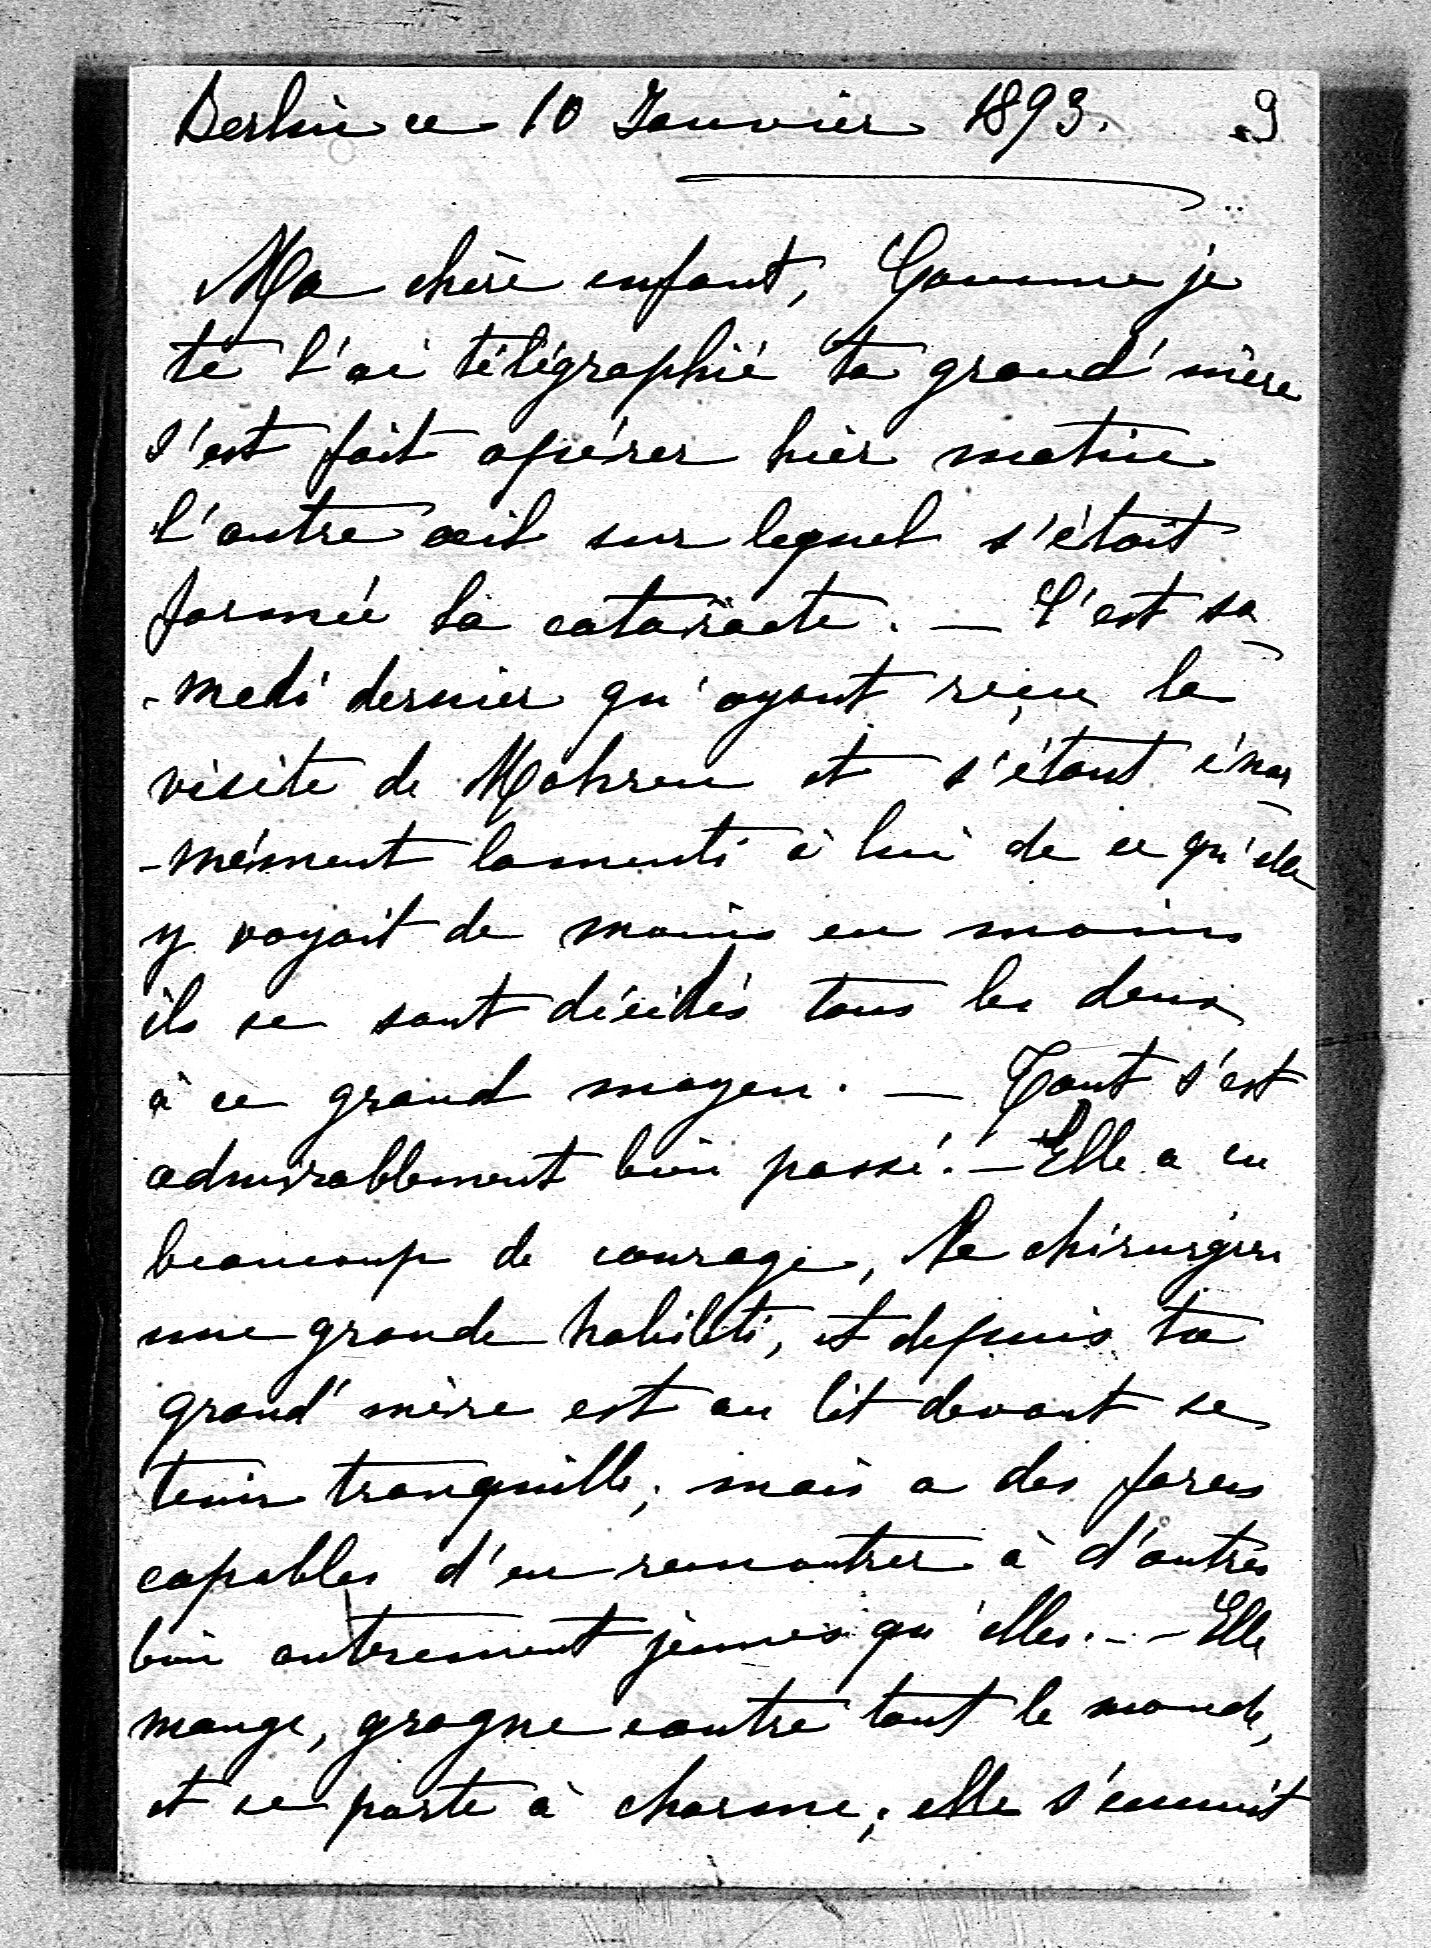 Berlin ce 10 Janvier 1893. 9
Ma chère enfant, Comme je
te l'ai télégraphié ta grand'mère
s'est fait opérer hier matin
l'autre œil sur lequel s'était
formée la cataracte. — C'est sa
-medi dernier qu'ayant reçu la
visite de Mohren et s'étant énor
-mément lamenté à lui de ce qu'elle
y voyait de moins en moins
ils se sont décidés tous les deux
à ce grand moyen. — Tout s'est
admirablement bien passé. — Elle a eu
beaucoup de courage, le chirurgien
une grande habileté, et depuis ta
grand'mère est au lit devant se
tenir tranquille; mais a des forces
capables d'en remontrer à d'autres
bien autrement jeunes qu'elles. - - Elle
mange, grogne contre tout le monde,
et se porte à charme; elle s'ennuit